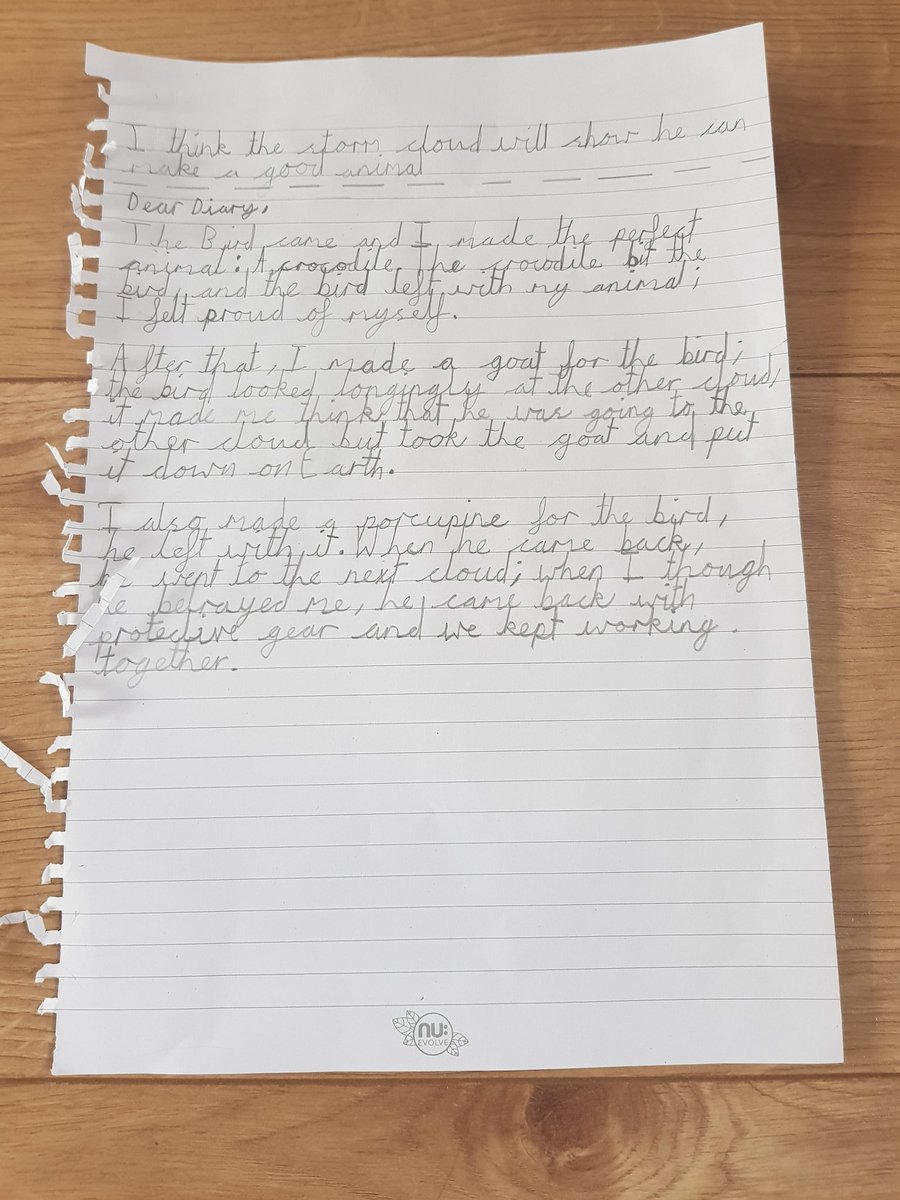 I think the storm cloud will show he can
make a good animal
Dear Diary,
The Bird came and I made the perfect
animal: A crocodile. The crocodile bit the
bird, and the bird left with my animal;
I felt proud of myself.
After that, I made a goat for the bird;
the bird looked longingly at the other cloud,
it made me think that he was going to the
other cloud but took the goat and put
it down on Earth.
I also made a porcupine for the bird,
he left with it. When he came back,
he went to the next cloud; when I though
he betrayed me, he came back with
protective gear and we kept working
together.
nu:
EVOLVE